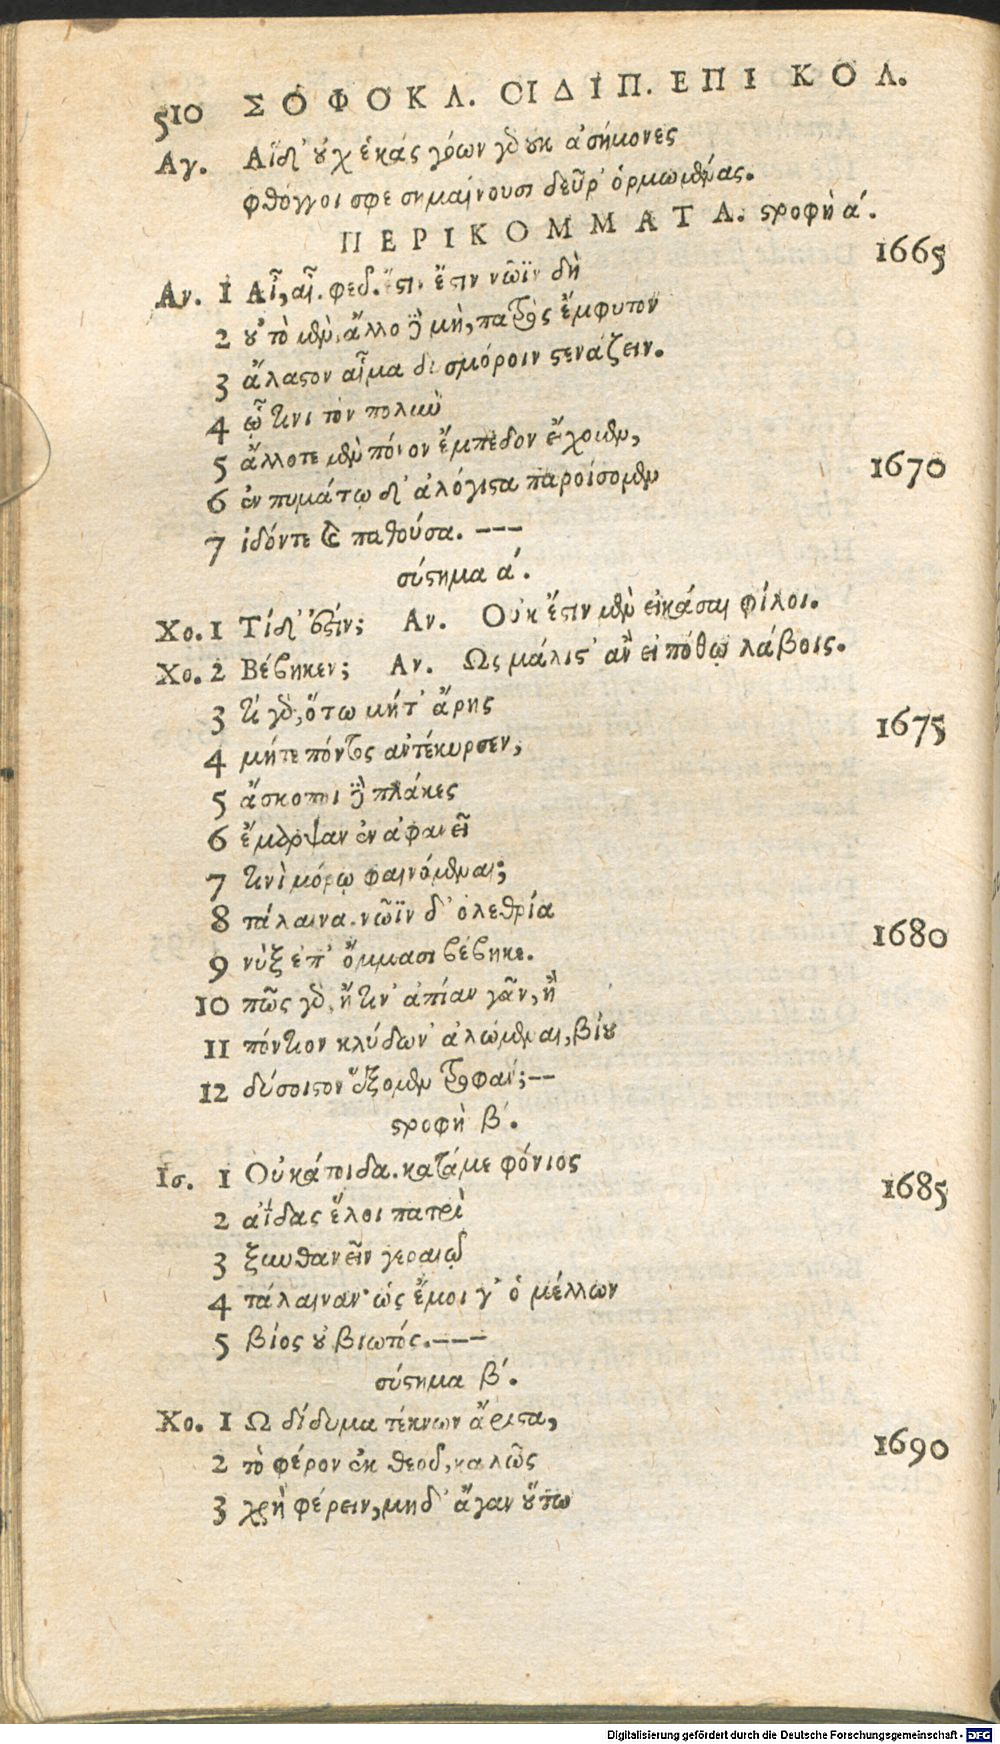 510 ΣΟΦΟΚΛ. ΟΙΔΙΠ. ΕΠΙ ΚΟΛ.
Αγ. Αἵδ' οὐχ ἑκάς γόων γὸ οὐκ ἀσήμονες
φθόγγοι σφε σημαίνουσι δεῦρ' ὁρμωμένας.
ΠΕΡΙΚΟΜΜΑΤΑ. στροφὴ α'.
Αν. 1 Αἶ, αἶ. φεῦ. ἔστιν ἔστιν νῶϊν δὴ 1665
2 οὐ τὸ μὲν, ἄλλο δὲ μὴ, πατρὸς ἔμφυτον
3 ἄλαστον αἷμα δυσμόροιν στενάζειν.
4 ᾧ τινι τὸν πολὺν
5 ἄλλοτε μὲν πόνον ἔμπεδον εἴχομεν,
6 ἐν πυμάτῳ δ' ἀλόγιστα παροίσομεν 1670
7 ἰδόντε καὶ παθούσα. ---
σύστημα α'.
Χο. 1 Τί δ' ἐστίν; Αν. Οὐκ ἔστιν μὲν εἰκάσαι φίλοι.
Χο. 2 Βέβηκεν; Αν. Ως μάλιστ' ἂν εἰ πόθῳ λάβοις.
3 τί γὰρ, ὅτῳ μήτ' ἄρης
4 μήτε πόντος ἀντέκυρσεν, 1675
5 ἄσκοποι δὲ πλάκες
6 ἔμαρψαν ἐν ἀφανεῖ
7 τινὶ μόρῳ φαινόμεναι;
8 τάλαινα. νῶϊν δ' ὀλεθρία
9 νὺξ ἐπ' ὄμμασι βέβηκε. 1680
10 πῶς γὰρ, ἤ τιν' ἀπίαν γᾶν, ἢ
11 πόντιον κλύδων' ἀλώμεναι, βίου
12 δύσοιστον ἕξομεν τροφάν; --
στροφὴ β'.
Ισ. 1 Οὐ κάτοιδα. κατά με φόνιος
2 ἀΐδας ἕλοι πατρὶ 1685
3 ξυνθανεῖν γεραιῷ
4 τάλαιναν· ὡς ἔμοι γ' ὁ μέλλων
5 βίος οὐ βιωτός. ---
σύστημα β'.
Χο. 1 Ω δίδυμα τέκνων ἄριστα,
2 τὸ φέρον ἐκ θεοῦ, καλῶς 1690
3 χρὴ φέρειν, μηδ' ἄγαν οὕτω
Digitalisierung gefördert durch die Deutsche Forschungsgemeinschaft - DFG